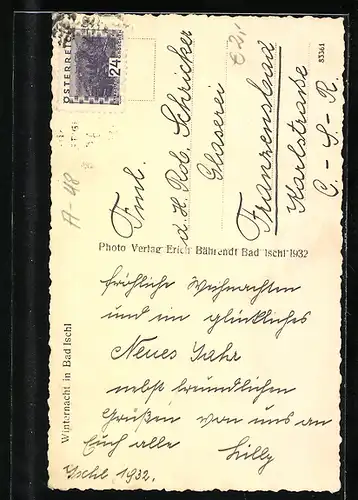 ÖSTERREICH
24
GROSCHEN
A-48
€ 2,-
Fml.
d. H. Rob. Schricker
Glaserei
Franzensbad
Karlstraße
C. - S. - R.
83361
Photo Verlag Erich Bährendt Bad Ischl 1932
Winternacht in Bad Ischl
fröhliche Weihnachten
und ein glückliches
Neues Jahr
nebst freundlichen
Grüßen von uns an
Euch alle Lilly
Ischl 1932.